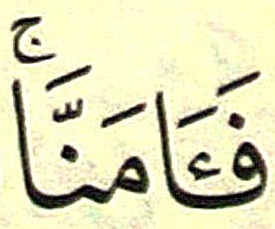 فَـَٔامَنَّاۚ